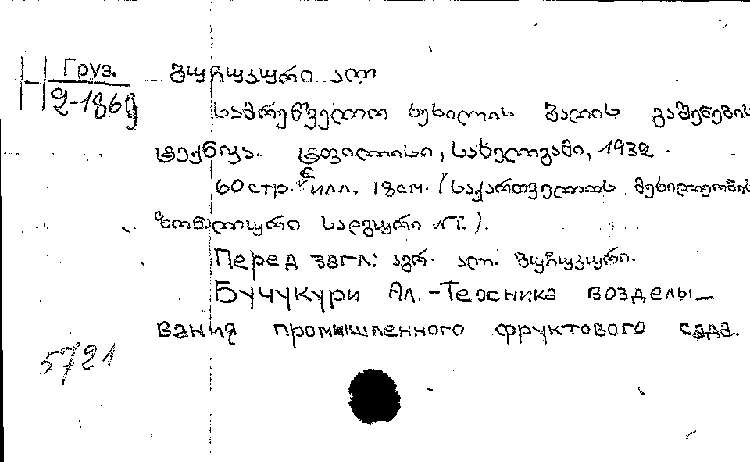 Н Груз.
2-1869
ბუჩუკური ალ.
სამრეწველო ხეხილის ბაღის გაშენების
ტექნიკა. ტფილისი, სახელგამი, 1932.
60 стр. с илл. 18 см. (საქართველოს მეხილეობის
ზონალური სადგური №1.).
Перед загл.: აგრ. ალ. ბუჩუკური.
Бучукури Ал. - Техника возделы-
вания промышленного фруктового сада.
5721